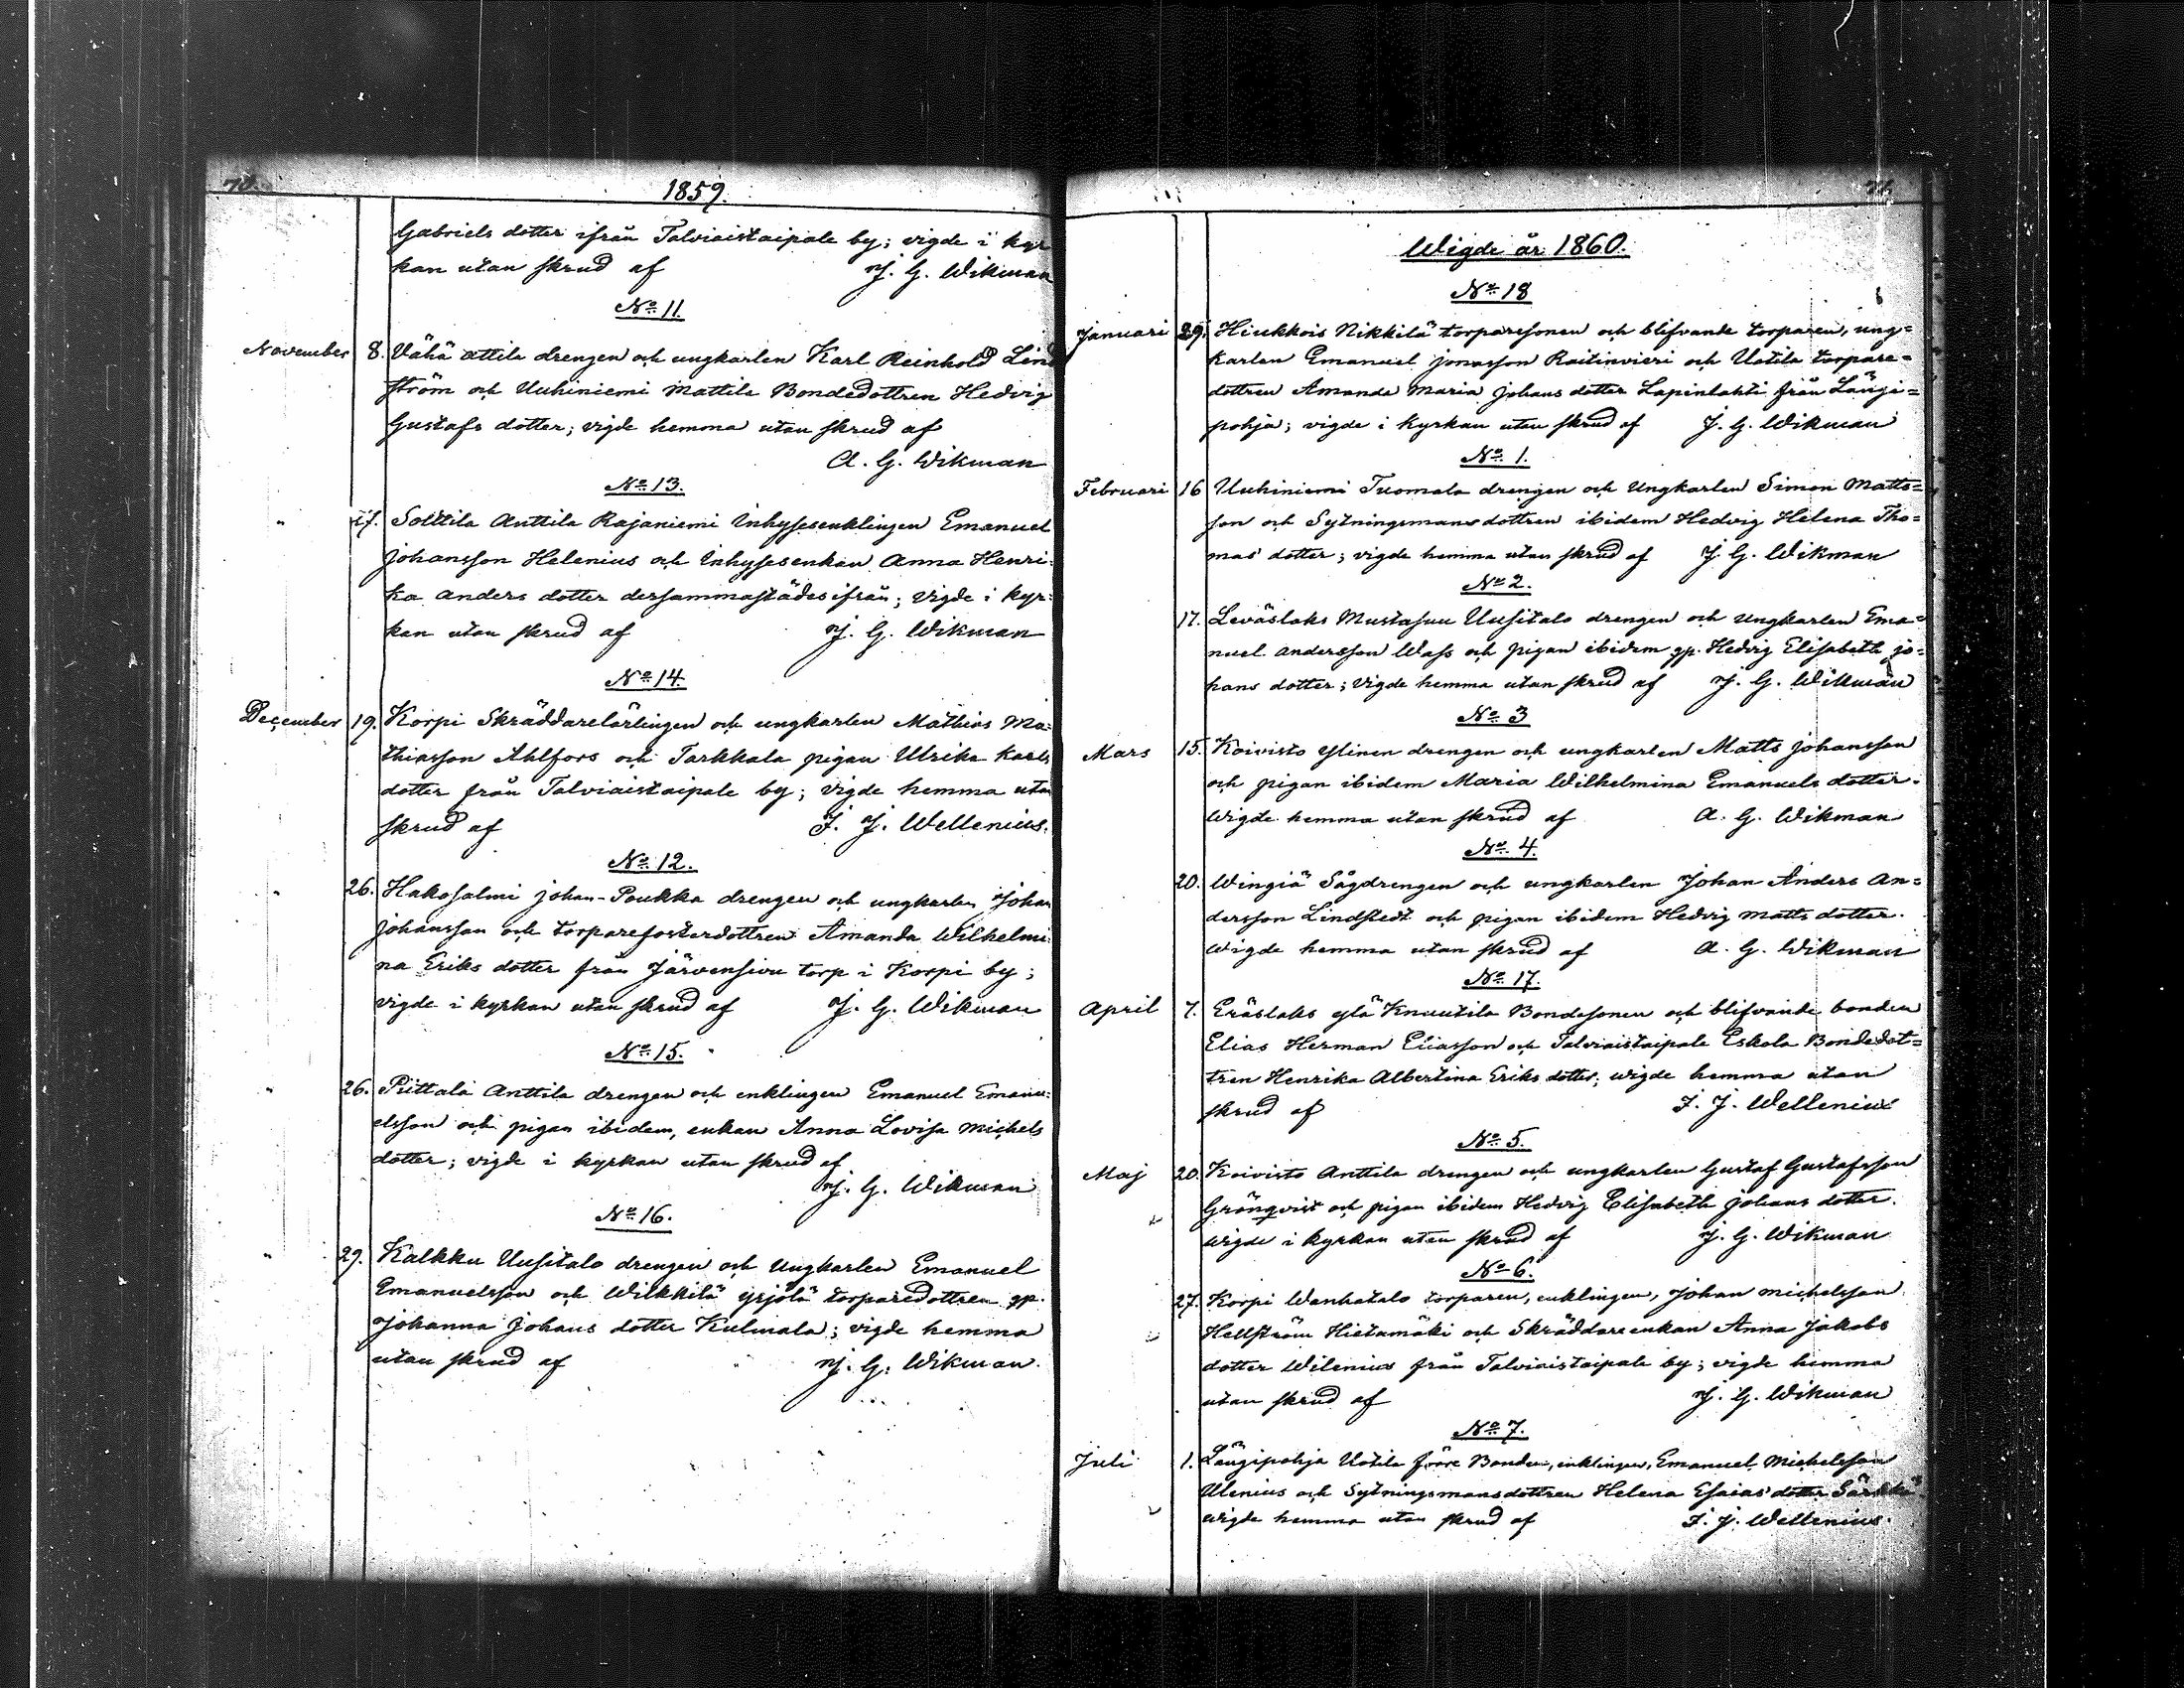 70.
1859.
Gabriels dotter ifrån Talviaistaipale by; vigde i kyr
kan utan skrud af J. G. Wikman
No. 11.
November 8. Vähä attila drengen och ungkarlen Karl Reinhold Lind
ström och Uuhiniemi Mattila Bondedottren Hedvig
Gustafs dotter; vigde hemma utan skrud af
A. G. Wikman
No. 13.
" 27. Solttila Anttila Rajaniemi Inhysesenklingen Emanuel
Johansson Helenius och Inhysesenkan Anna Henri-
ka Anders dotter dersammastädes ifrån; vigde i kyr-
kan utan skrud af J. G. Wikman
No. 14.
December 19. Korpi Skräddarelärlingen och ungkarlen Mathias Ma-
thiasson Ahlfors och Tarkkala pigan Ulrika Karls
dotter från Talviaistaipale by; vigde hemma utan
skrud af F. J. Wellenius.
No. 12.
" 26. Hakosalmi Johan-Poukka drengen och ungkarlen Johan
Johansson och torparefosterdottren Amanda Wilhelmi-
na Eriks dotter från Järvensivu torp i Korpi by;
vigde i kyrkan utan skrud af J. G. Wikman
No. 15.
" 26. Piittala Anttila drengen och enklingen Emanuel Emanu-
elsson och pigan ibidem, enkan Anna Lovisa Michels
dotter; vigde i kyrkan utan skrud af
J. G. Wikman
No. 16.
" 29. Kalkku Uusitalo drengen och Ungkarlen Emanuel
Emanuelsson och Wilkkilä yrjölä torparedottren gp.
Johanna Johans dotter Kulmala; vigde hemma
utan skrud af J. G. Wikman.
71.
Wigde år 1860.
No. 18
Januari 29. Hiukkois Nikkilä torparesonen och blifvande torparen, ung=
karlen Emanuel Jonasson Raitinvieri och Uotila torpare=
dottren Amanda Maria Johans dotter Lapinlahti från Längi=
pohja; vigde i Kyrkan utan skrud af J. G. Wikman
No. 1.
Februari 16 Uuhiniemi Tuomala drengen och Ungkarlen Simon Matts=
son och Sytningsmansdottren ibidem Hedvig Helena Tho=
mas dotter; vigde hemma utan skrud af J. G. Wikman
No. 2.
17. Leväslaks Mustasuu Uusitalo drengen och Ungkarlen Ema=
nuel Andersson Wass och pigan ibidem gp. Hedvig Elisabeth Jo=
hans dotter; vigde hemma utan skrud af J. G. Wikman
No. 3
Mars 15. Koivisto Ylinen drengen och ungkarlen Matts Johansson
och pigan ibidem Maria Wilhelmina Emanuels dotter.
Wigde hemma utan skrud af A. G. Wikman
No. 4.
20. Wingiä Sågdrengen och ungkarlen Johan Anders An=
dersson Lindstedt och pigan ibidem Hedvig Matts dotter.
Wigde hemma utan skrud af A. G. Wikman
No. 17.
April 7. Eräslaks ylä Knuutila Bondesonen och blifvande bonden
Elias Herman Eliasson och Talviaistaipale Eskola Bondedot=
tren Henrika Albertina Eriks dotter; wigde hemma utan
skrud af F. J. Wellenius
No. 5.
Maj 20. Koivisto Anttila drengen och ungkarlen Gustaf Gustafsson
Grönqvist och pigan ibidem Hedvig Elisabeth Johans dotter.
wigde i kyrkan utan skrud af J. G. Wikman
No. 6.
27. Korpi Wanhatalo torparen, enklingen, Johan Michelsson
Hellström Hietamäki och Skräddareenkan Anna Jakobs
dotter Wilenius från Talviaistaipale by; vigde hemma
utan skrud af J. G. Wikman
No. 7.
Juli 1. Längipohja Uotila förre Bonden, enklingen, Emanuel Michelsson
Ulenius och Sytningsmansdottren Helena Esaias dotter
wigde hemma utan skrud af F. J. Wellenius.